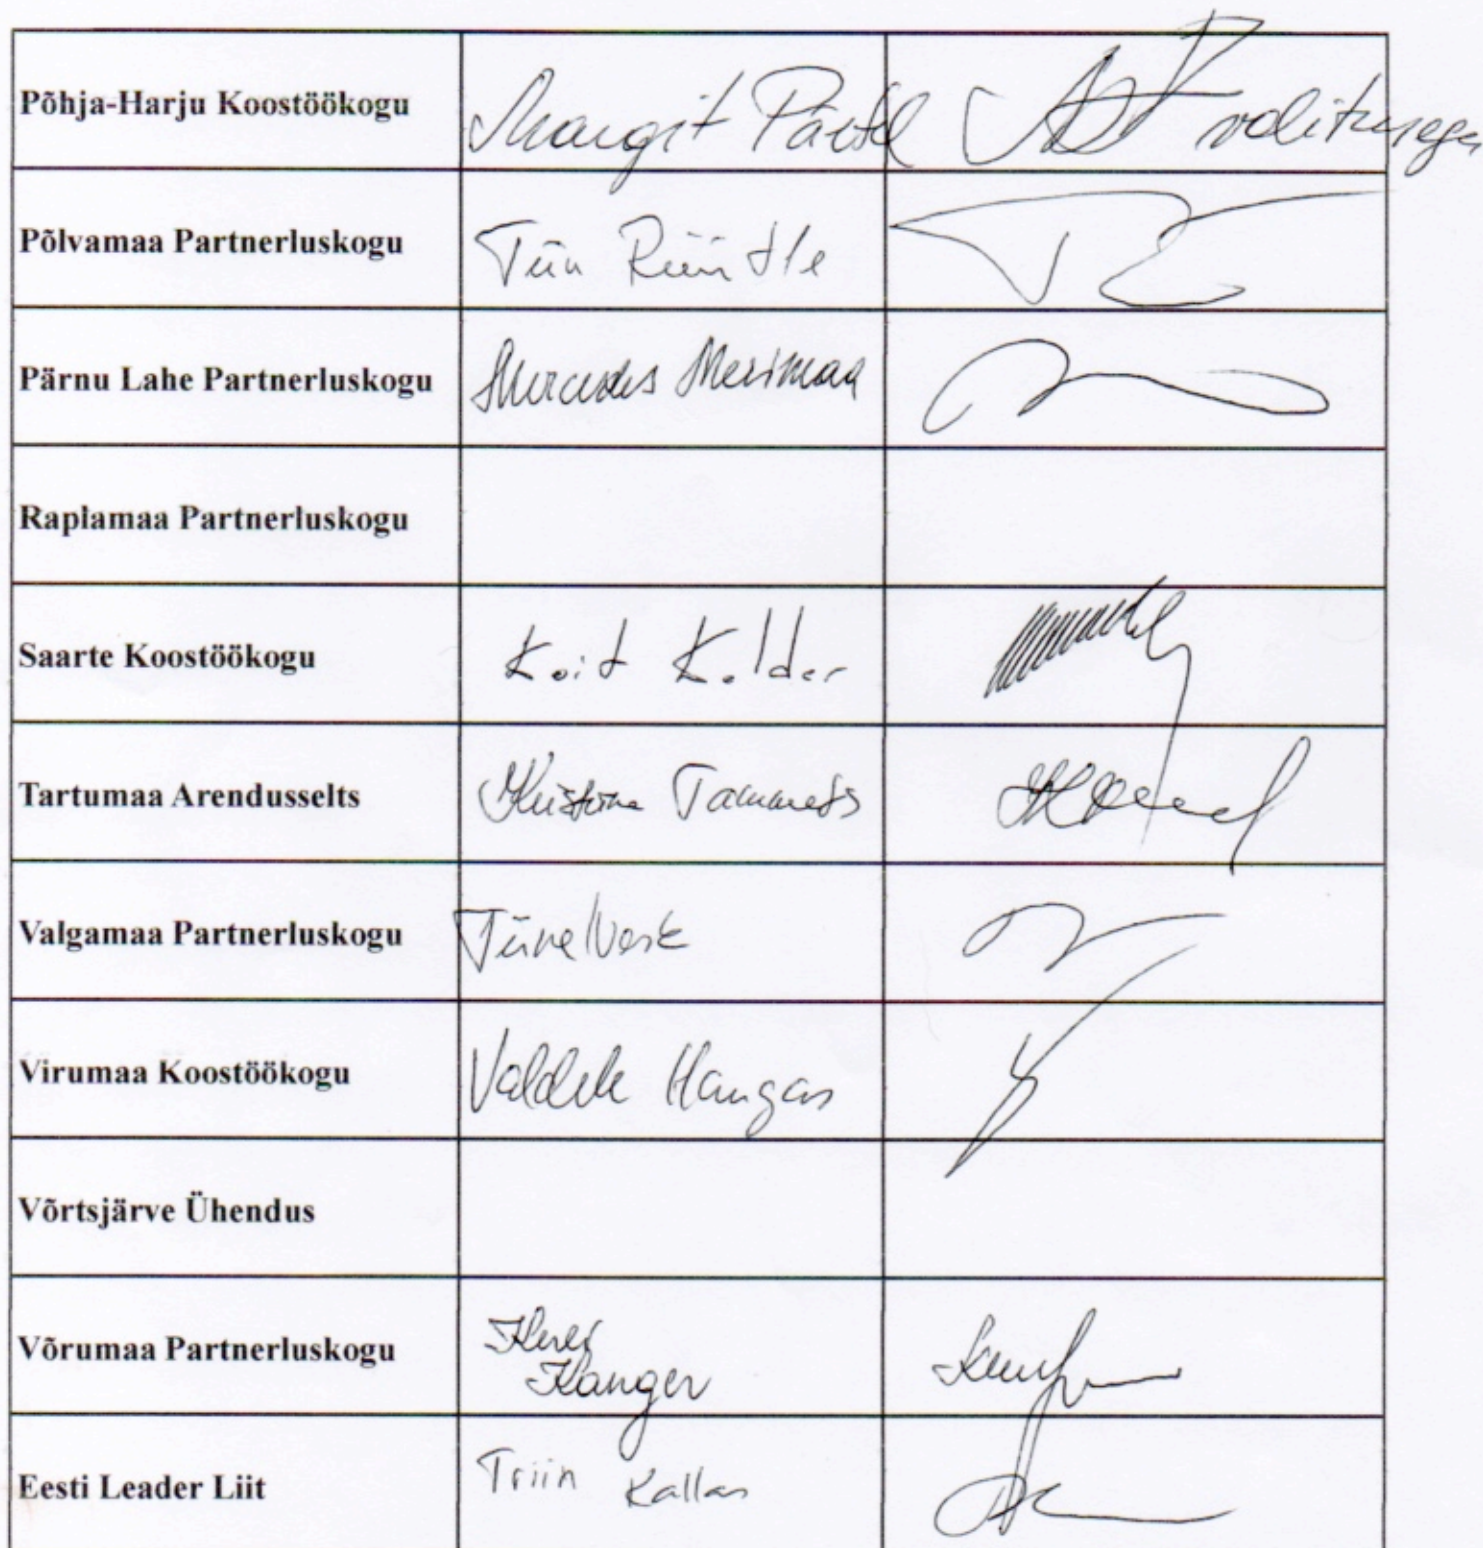 Põhja-Harju Koostöökogu Margit Pärtel volitusega
Põlvamaa Partnerluskogu Tiin Rüüitle
Pärnu Lahe Partnerluskogu Mercedes Merimaa
Raplamaa Partnerluskogu
Saarte Koostöökogu Koit Kelder
Tartumaa Arendusselts Kristiina Tammets
Valgamaa Partnerluskogu
Virumaa Koostöökogu Valdek Hangas
Võrtsjärve Ühendus
Võrumaa Partnerluskogu
Kanger
Eesti Leader Liit Triin Kallas